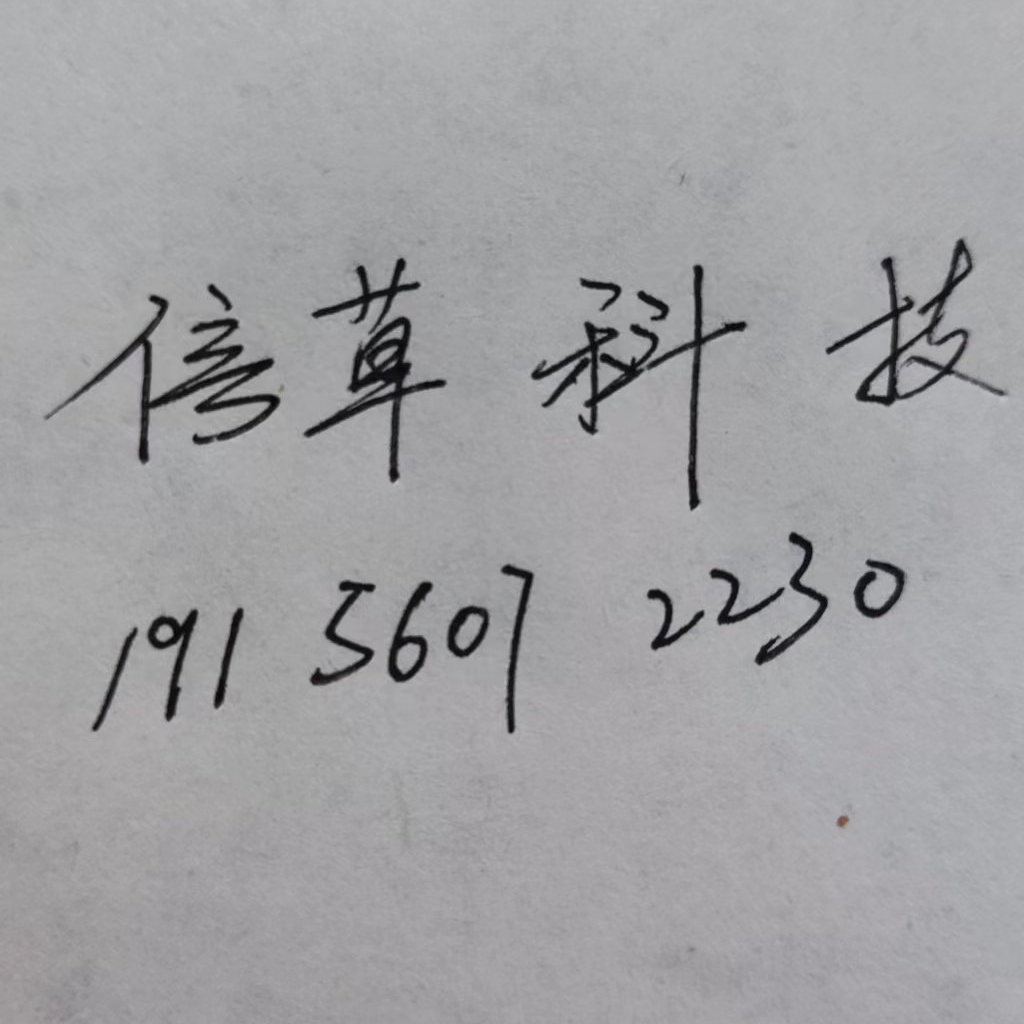 倍草科技
191 5607 2230